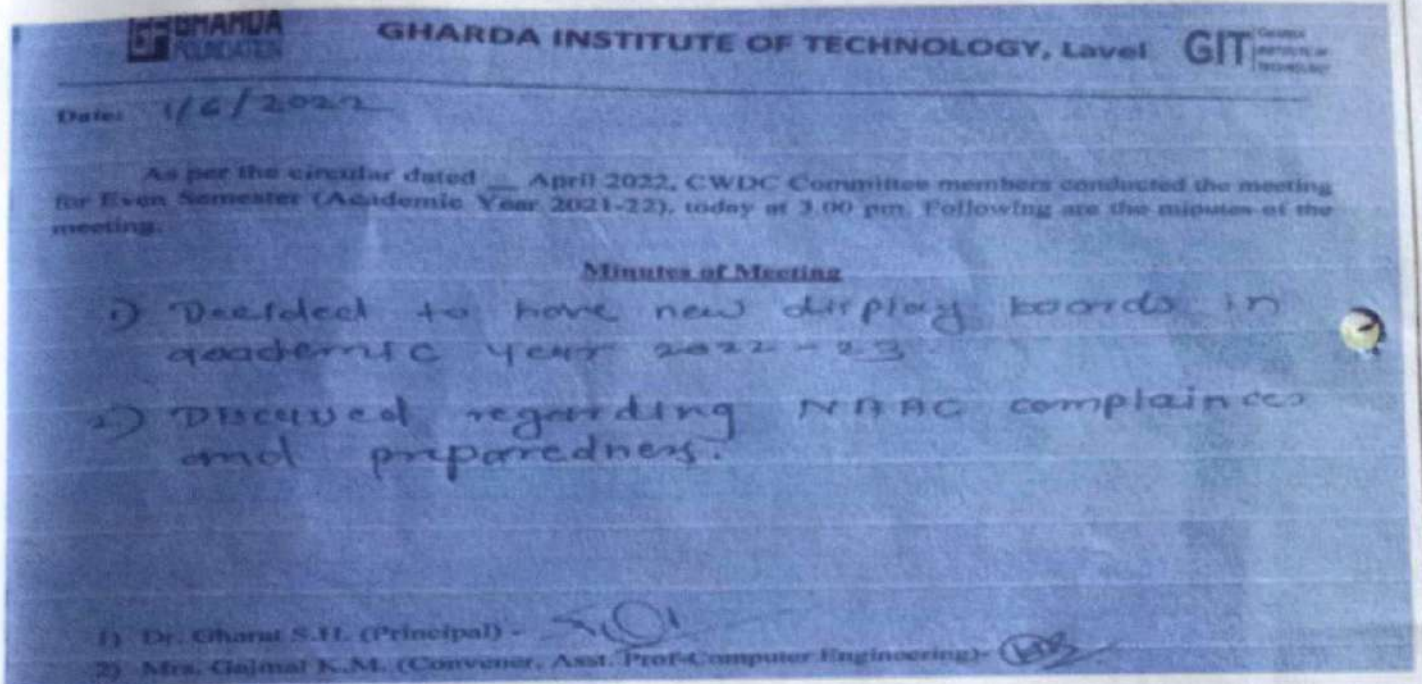 GHARDA
FOUNDATION
GHARDA INSTITUTE OF TECHNOLOGY, Lavel
GIT GHARDA INSTITUTE OF TECHNOLOGY
Date: 1/6/2022
As per the circular dated __ April 2022, CWDC Committee members conducted the meeting
for Even Semester (Academic Year 2021-22), today at 3.00 pm. Following are the minutes of the
meeting.
Minutes of Meeting
1) Decided to have new display boards in
academic year 2022-23
2) Discussed regarding NAAC complainces
and preparedness.
1) Dr. Gharat S.H. (Principal) -
2) Mrs. Gajmal K.M. (Convener, Asst. Prof-Computer Engineering)-